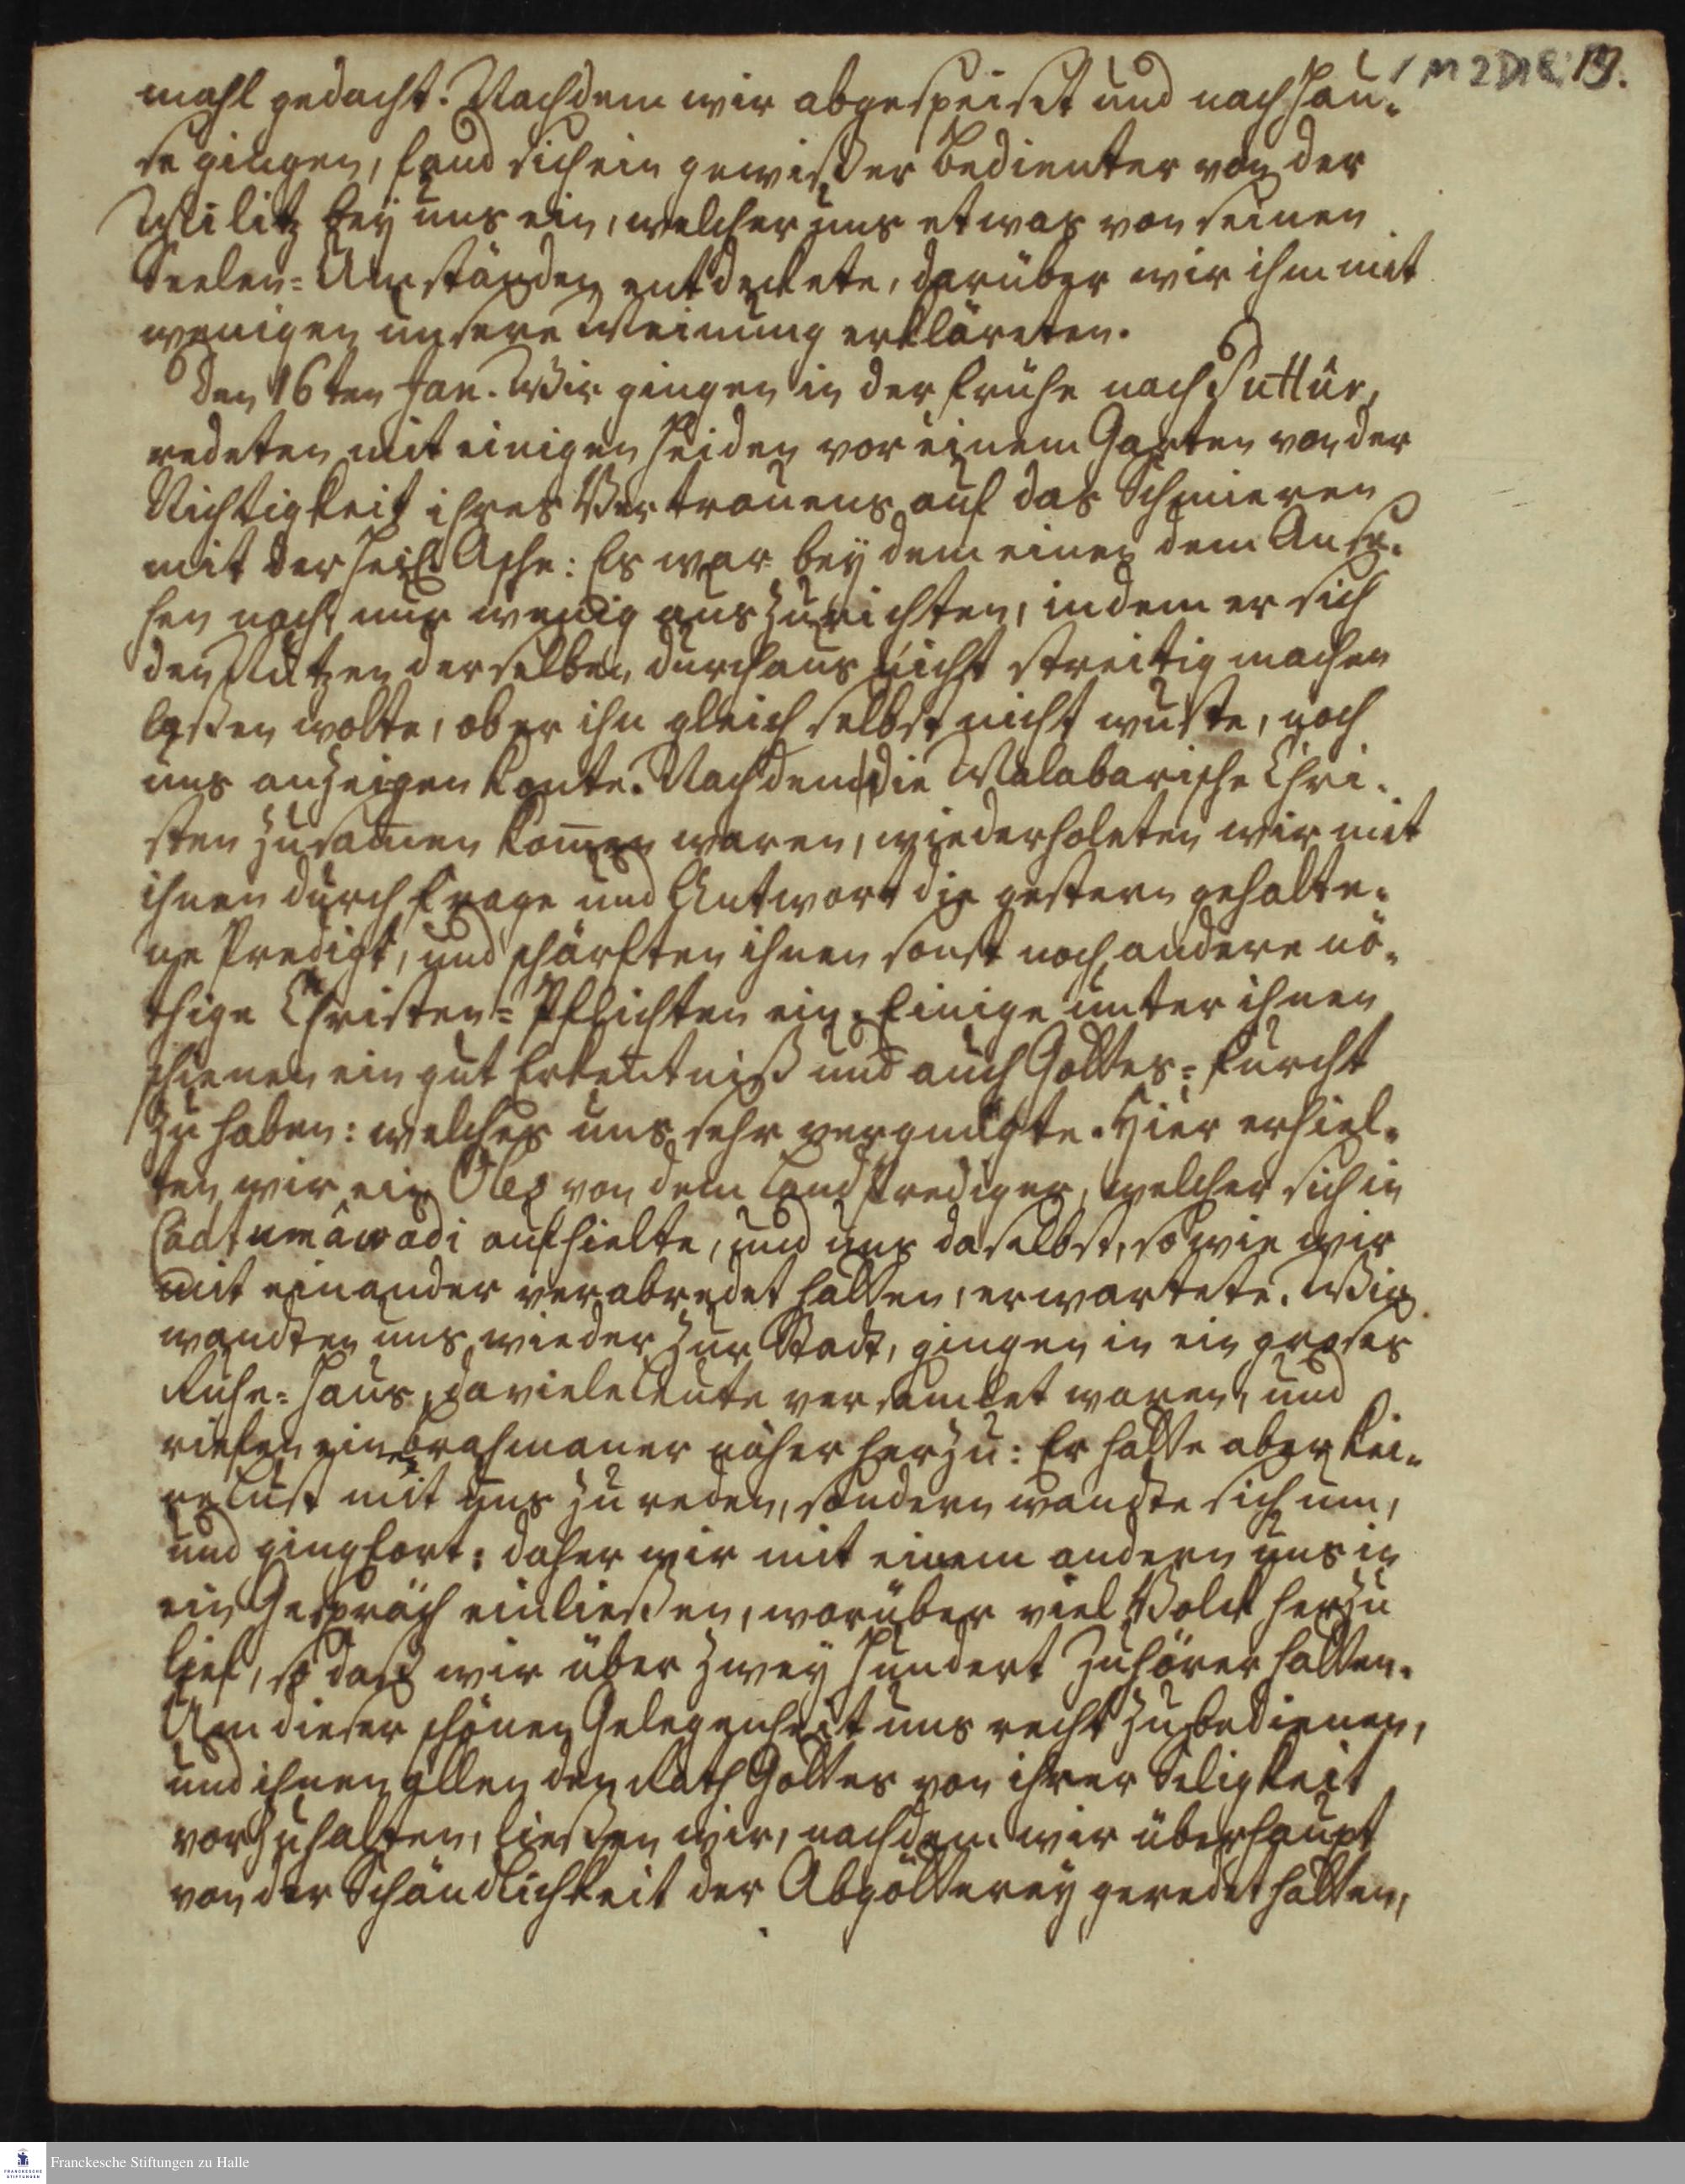 1 M 2 D 18 : 19.
mahl gedacht. Nachdem wir abgespeiset und nach Hau-
se gingen, fand sich ein gewisser Bedienter von der
Militz bey uns ein, welcher uns etwas von seinen
Seelen=Umständen entdeckete, darüber wir ihm mit
wenigen unsere Meinung erkläreten.
Den 16ten Jan. Wir gingen in der Frühe nach Puttûr,
redeten mit einigen Heiden vor einem Garten von der
Nichtigkeit ihres Vertrauens auf das Schmieren
mit der Heil. Asche: Es war bey dem einen dem Anse-
hen nach nur wenig auszurichten, indem er sich
den Nutzen derselben durchaus nicht streitig machen
laßen wolte, ob er ihn gleich selbst nicht wuste, noch
uns anzeigen konte. Nachdem die Malabarische Chri-
sten zusam̄en kom̄en waren, wiederholeten wir mit
ihnen durch Frage und Antwort die gestern gehalte-
ne Predigt, und schärften ihnen sonst noch andere nö-
thige Christen=Pflichten ein. Einige unter ihnen
schienen ein gut Erkentniß und auch Gottes=Furcht
zu haben: welches uns sehr vergnügte. Hier erhiel-
ten wir ein Oles von dem Land Prediger, welcher sich in
Cadtumâwadi aufhielte, und uns daselbst, so wie wir
mit einander verabredet hatten, erwartete. Wir
wandten uns wieder zur Stadt, gingen in ein groses
Ruhe=Haus, da viele Leute versamlet waren, und
riefen ein Brahmaner näher herzu: Er hatte aber kei-
ne Lust mit uns zu reden, sondern wandte sich um,
und ging fort: daher wir mit einem andern uns in
ein Gespräch einließen, worüber viel Volck herzu
lief, so daß wir über zwey Hundert Zuhörer hatten.
Um dieser schönen Gelegenheit uns recht zu bedienen,
und ihnen allen den Rath Gottes von ihrer Seligkeit
vorzuhalten, ließen wir, nachdem wir überhaupt
von der Schändlichkeit der Abgötterey geredet hatten,
Franckesche Stiftungen zu Halle